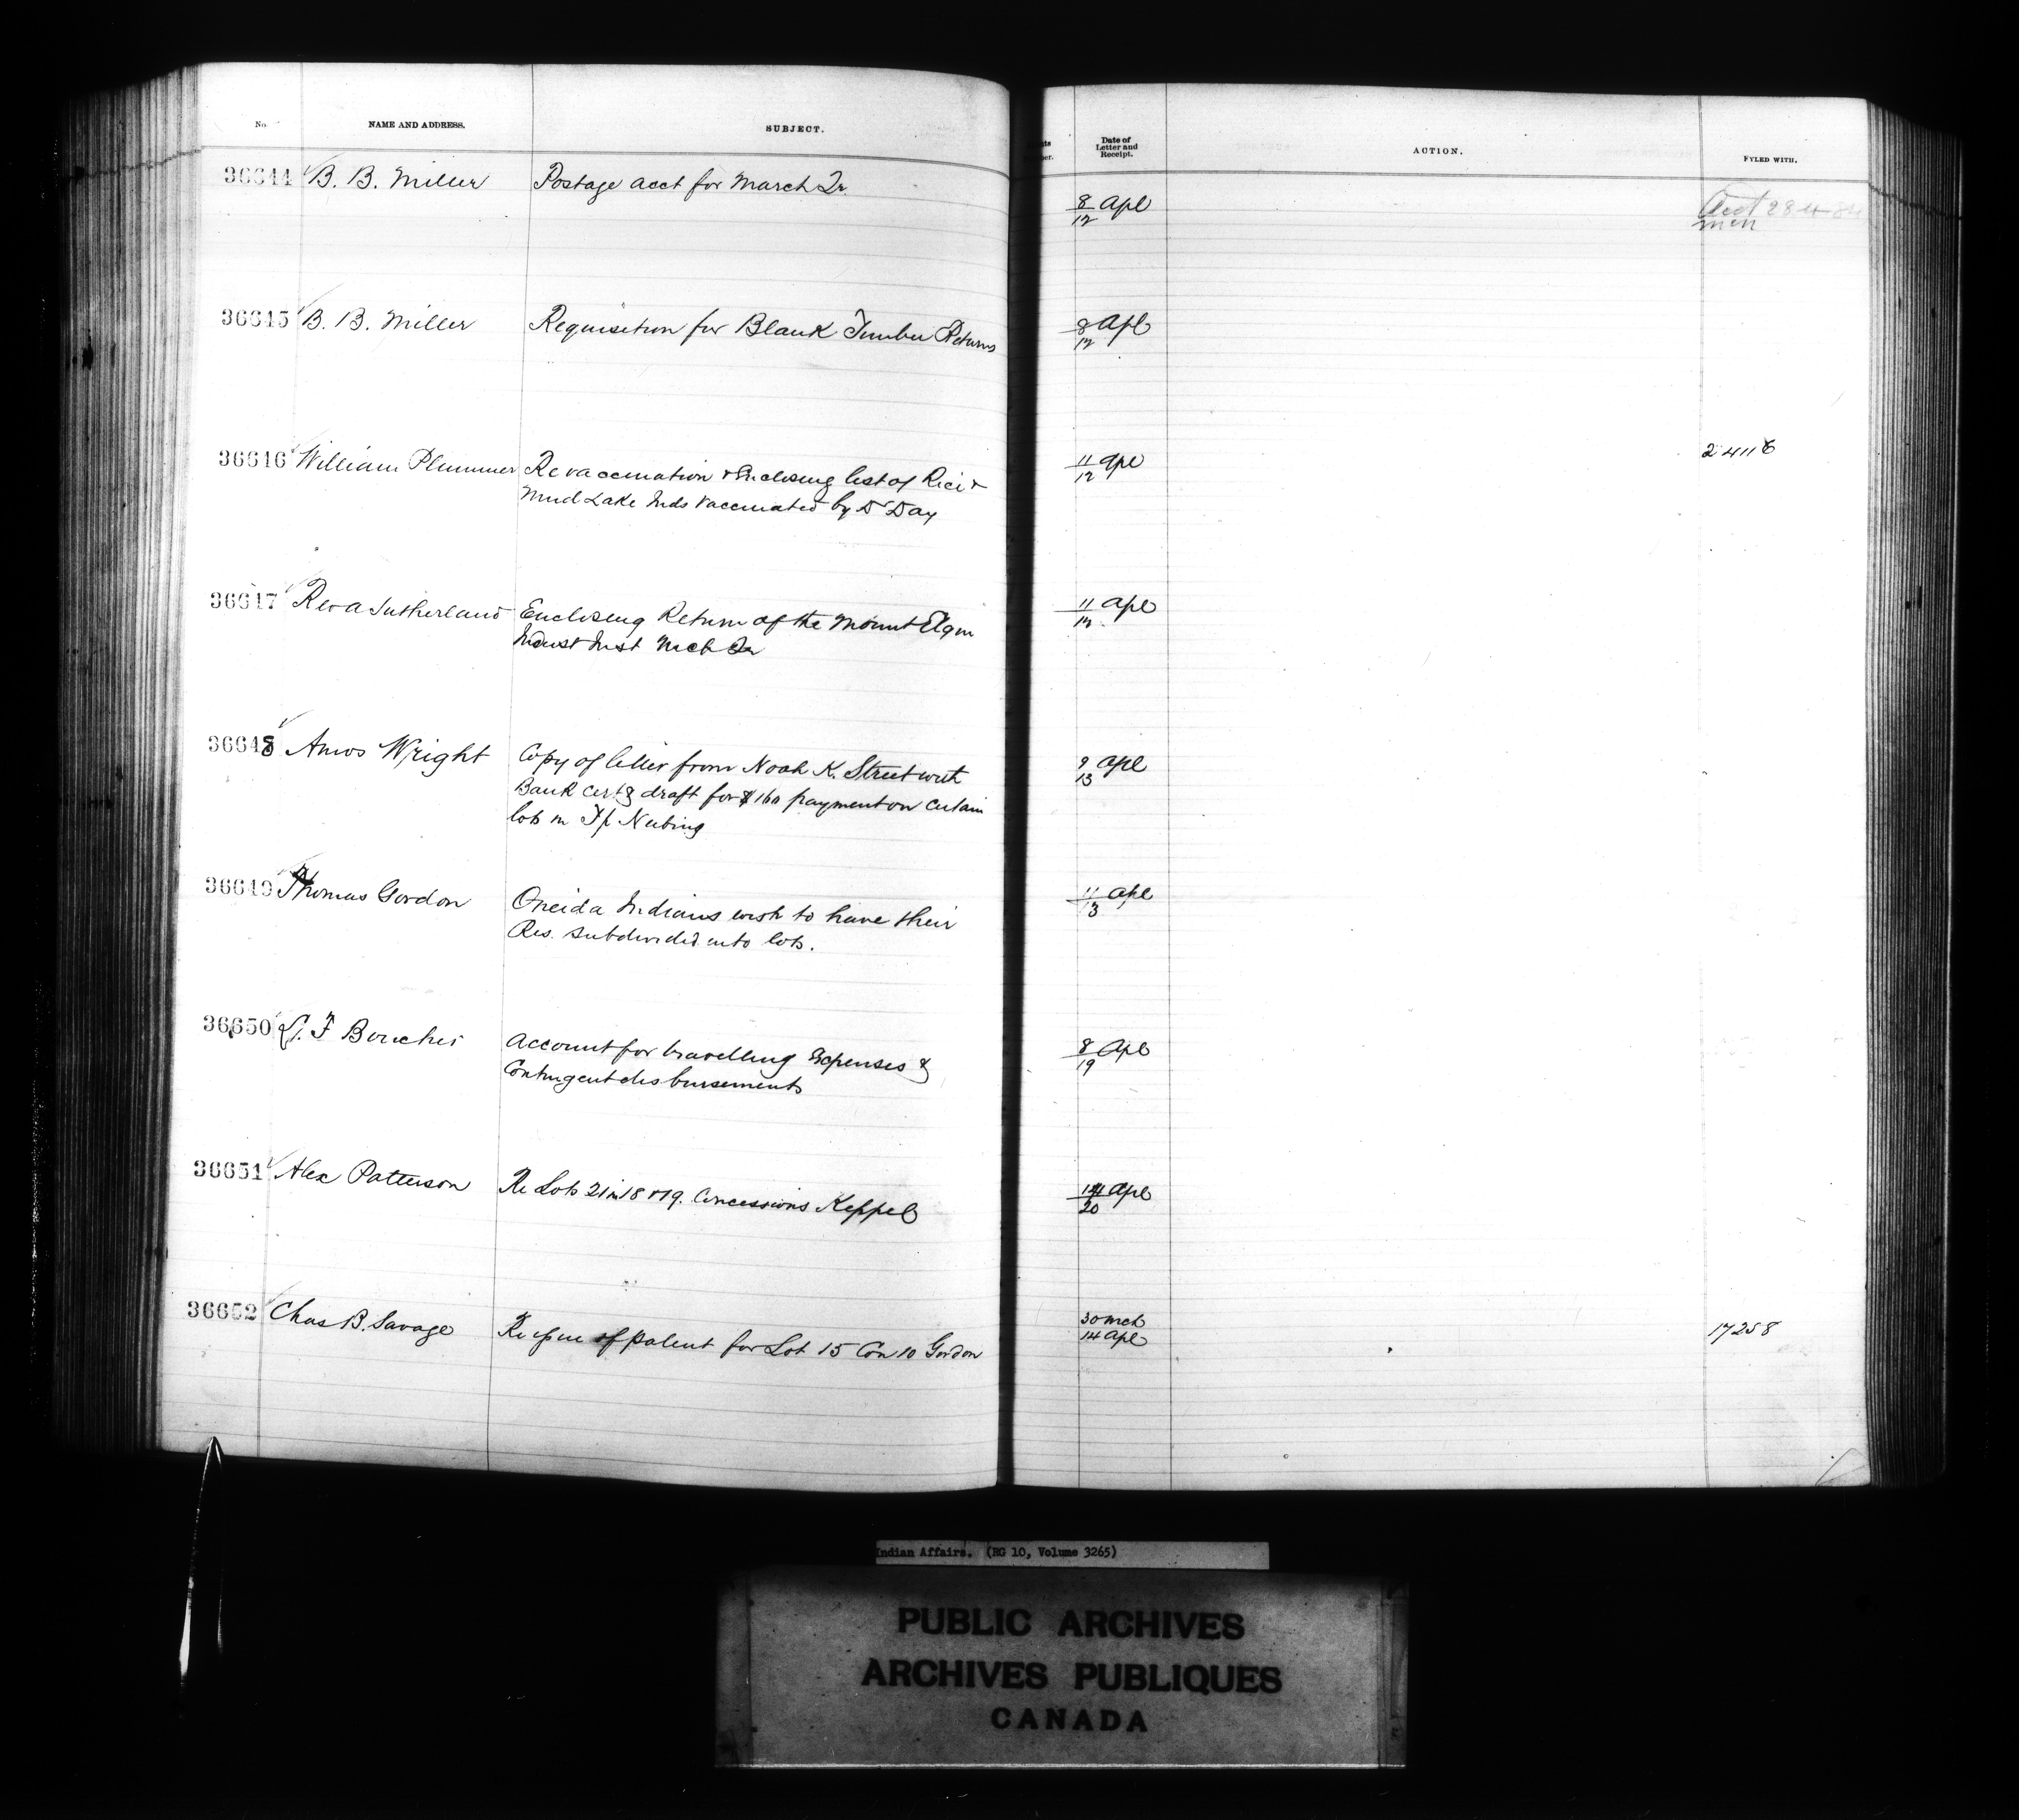 No. NAME AND ADDRESS. SUBJECT. Date of Letter and Receipt. ACTION. FYLED WITH.
36644 B. B. Miller Postage acct for March Qr. 8/12 Apl 28-4-84
36645 B. B. Miller Requisition for Blank Timber Returns 8/12 Apl
36646 William Plummer Re vaccination & Enclosing list of Rice & 11/12 Apl 24116
Mud Lake Inds vaccinated by Dr Day
36647 Rev A Sutherland Enclosing Return of the Mount Elgin 11/12 Apl
Indust Inst Mch Qr
36648 Amos Wright Copy of letter from Noah K. Street with 9/13 Apl
Bank Cert & draft for $160 payment on certain
lots in Tp Neebing
36649 Thomas Gordon Oneida Indians wish to have their 11/13 Apl
Res. subdivided into lots.
36650 L. F Boucher Account for travelling Expenses & 8/19 Apl
Contingent disbursements
36651 Alex Patterson Re Lots 21 in 18 & 19. Concessions Keppel 14/20 Apl
36652 Chas B. Savage Re issue of patent for Lot 15 Con 10 Gordon 30 Mch 17258
14 Apl
Indian Affairs. (RG 10, Volume 3265)
PUBLIC ARCHIVES
ARCHIVES PUBLIQUES
CANADA